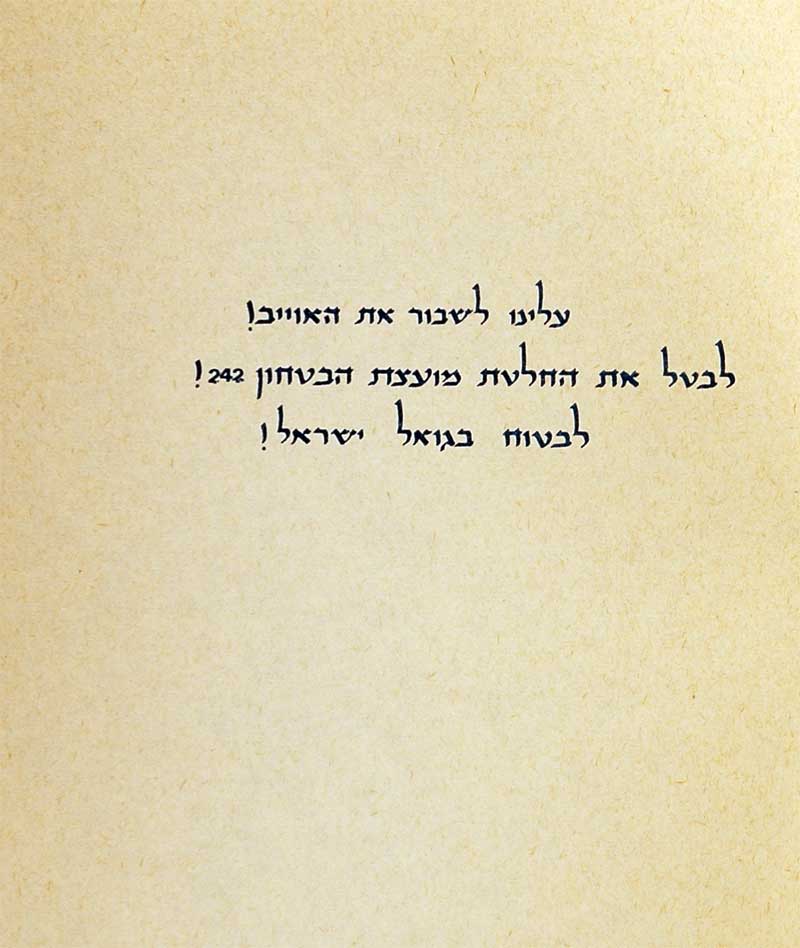 עלינו לשבור את האוייב!
לבטל את החלטת מועצת הבטחון 242!
לבטוח בגואל ישראל!